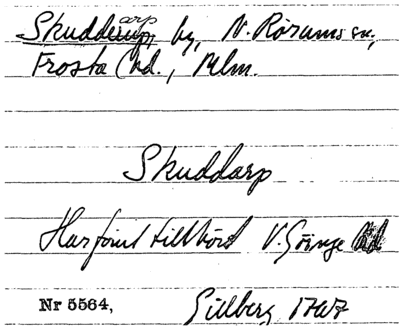 Skudderup, arp by, N. Rörums sn,
Frosta hd., Mlm.
Skuddarp
Har förut tillhört V. Göinge hd
Nr 5564, Gillberg 1767